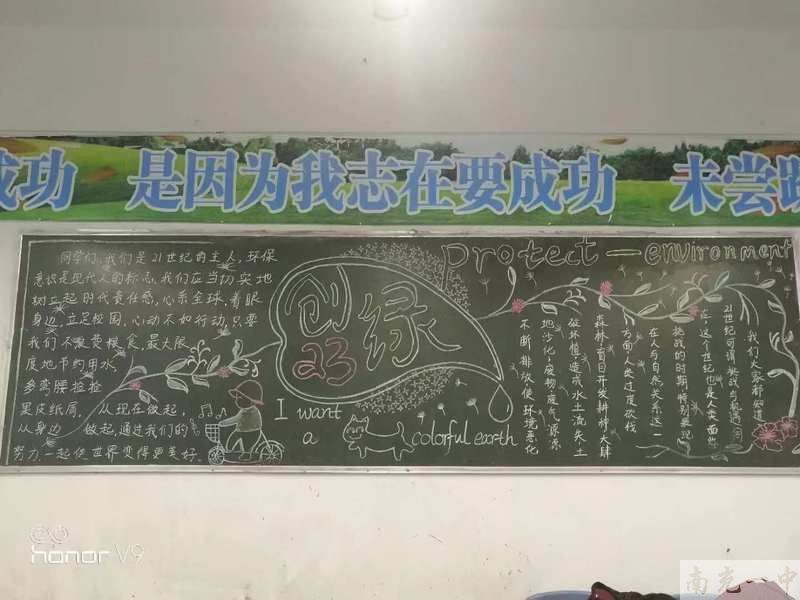 成功 是因为我志在要成功 未尝
Protect — environment
同学们,我们是21世纪的主人,环保
意识是现代人的标志,我们应当切实地
树立起时代责任感,心系全球,着眼
身边,立足校园,心动不如行动,只要
我们不浪费粮食,最大限
度地节约用水,
多弯腰捡捡
果皮纸屑,从现在做起,
从身边做起,通过我们的
努力,一起使世界变得更美好。
创绿
23
I want
a colorful earth
我们大家都知道
21世纪可谓挑战与机遇
在这个世纪也是人类面临
挑战的时期特别表现
在人与自然关系这一
方面,人类过度砍伐
森林,盲目开发耕种,大肆
破坏植造成水土流失土
地沙化,废物废气源源
不断排放使环境恶化
honor V9
南充一中